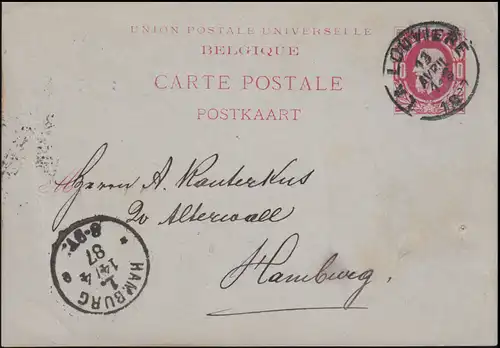 UNION POSTALE UNIVERSELLE
BELGIQUE
CARTE POSTALE
POSTKAART
LA LOUVIERE
13
AVRIL
1887
10 10
Herrn A. Kanterkus
Alterwall
Hamburg.
HAMBURG
1.
14/4
87
8-9V.